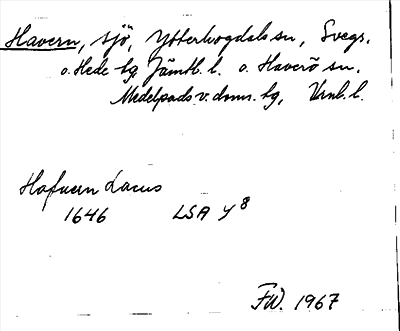 Havern, sjö, Ytterhogdals sn, Svegs.
o. Hede tg Jämtl. l. o. Haverö sn,
Medelpads v. doms. tg, Vrnl. l.
Hafuern Lacus
1646 LSA Y 8
FW. 1967